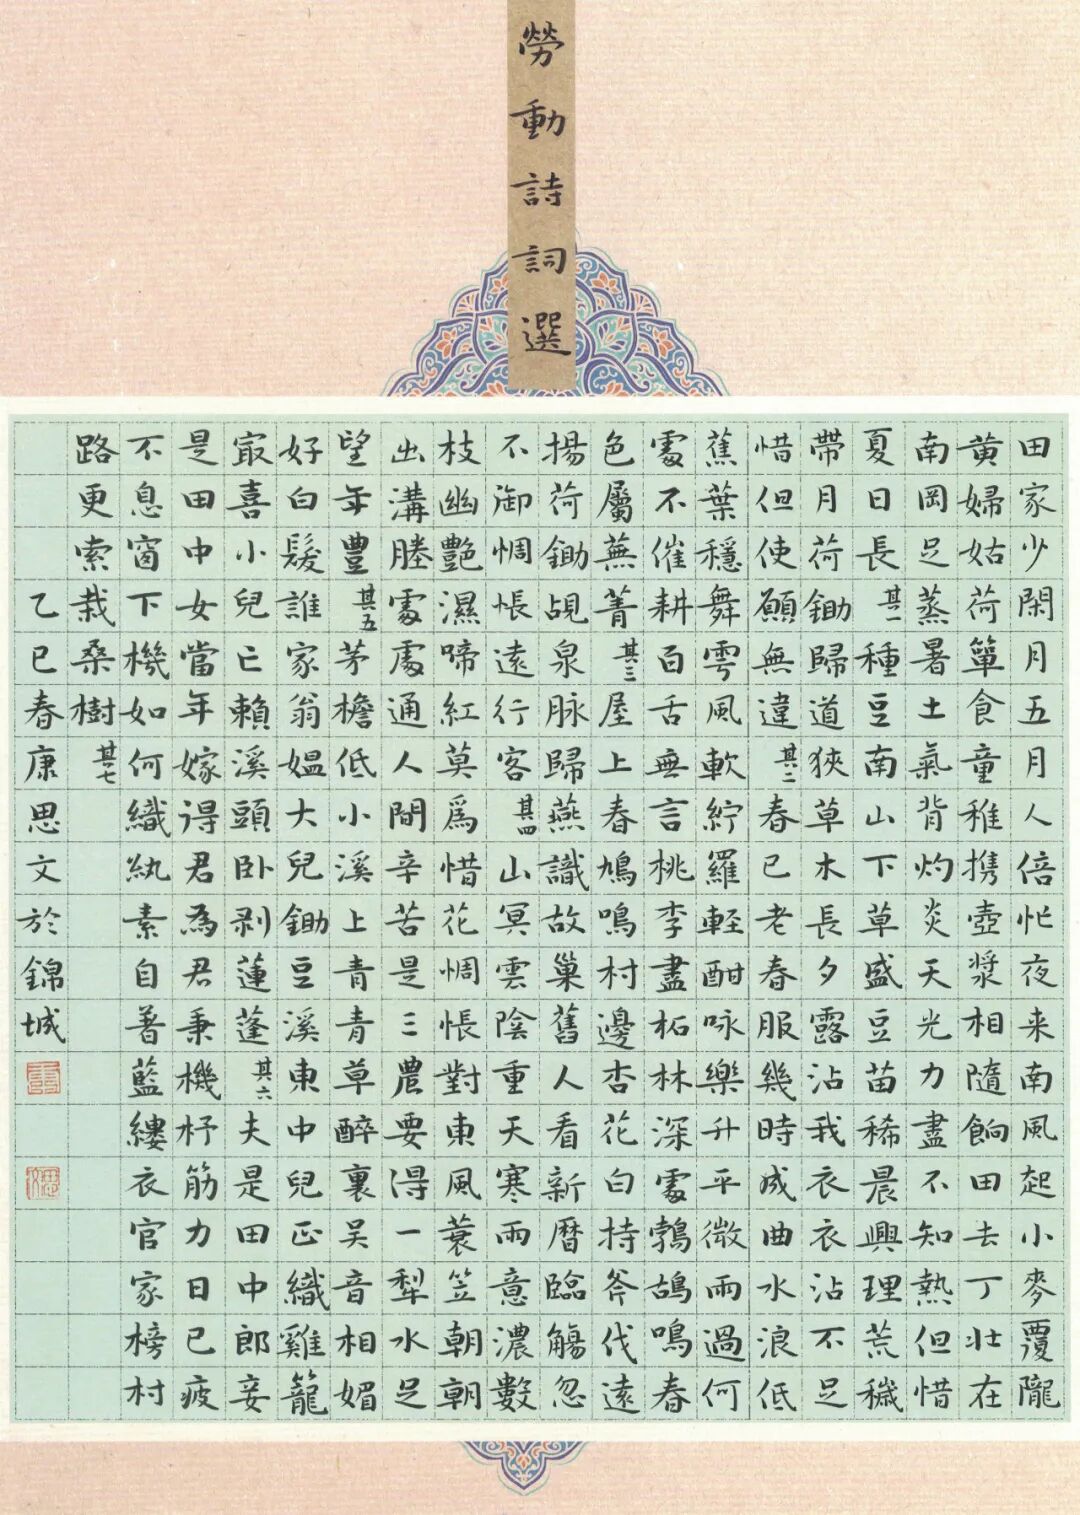 勞動詩詞選
田家少閑月五月人倍忙夜来南風起小麥覆隴
黄婦姑荷簞食童稚携壺漿相隨餉田去丁壯在
南岡足蒸暑土氣背灼炎天光力盡不知熱但惜
夏日長其一種豆南山下草盛豆苗稀晨興理荒穢
帶月荷鋤歸道狹草木長夕露沾我衣衣沾不足
惜但使願無違其二春已老春服幾時成曲水浪低
蕉葉穩舞雩風軟紵羅輕酣咏樂升平微雨過何
處不催耕百舌無言桃李盡柘林深處鵓鴣鳴春
色屬蕪菁其三屋上春鳩鳴村邊杏花白持斧伐遠
揚荷鋤覘泉脉歸燕識故巢舊人看新曆臨觴忽
不御惆悵遠行客其四山冥雲陰重天寒雨意濃數
枝幽艷濕啼紅莫爲惜花惆悵對東風蓑笠朝朝
出溝塍處處通人間辛苦是三農要得一犁水足
望年豐其五茅檐低小溪上青青草醉裏吴音相媚
好白髮誰家翁媼大兒鋤豆溪東中兒正織雞籠
㝡喜小兒亡賴溪頭卧剥蓮蓬其六夫是田中郎妾
是田中女當年嫁得君為君秉機杼筋力日已疲
不息窗下機如何織紈素自著藍縷衣官家榜村
路更索栽桑樹其七
乙巳春康思文於錦城